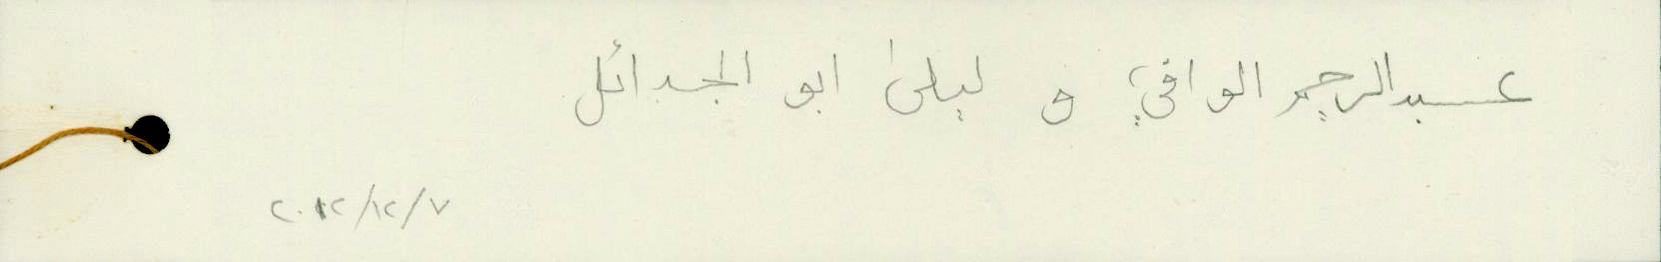 عبدالرحيم الوافي و ليلى ابو الجدائل
٢٠١٢/١٢/٧